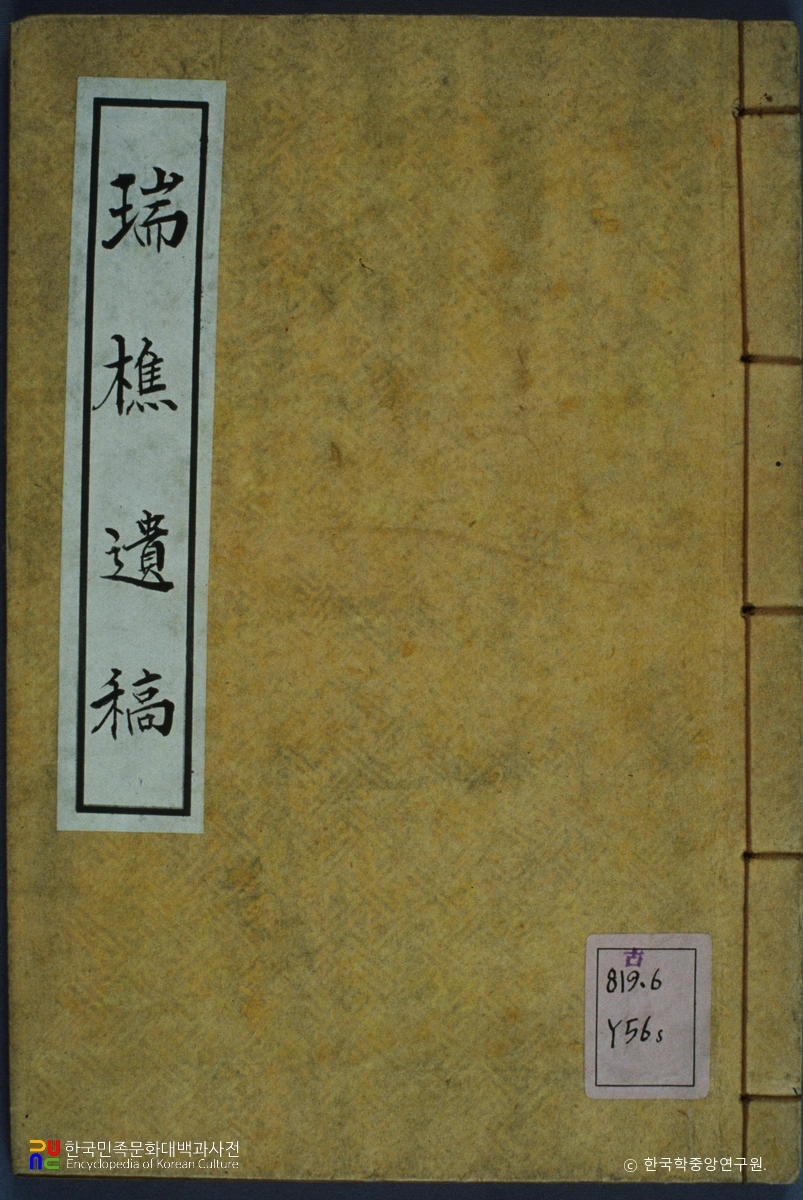 瑞樵遺稿
古
819.6
Y56s
한국민족문화대백과사전
Encyclopedia of Korean Culture
© 한국학중앙연구원.